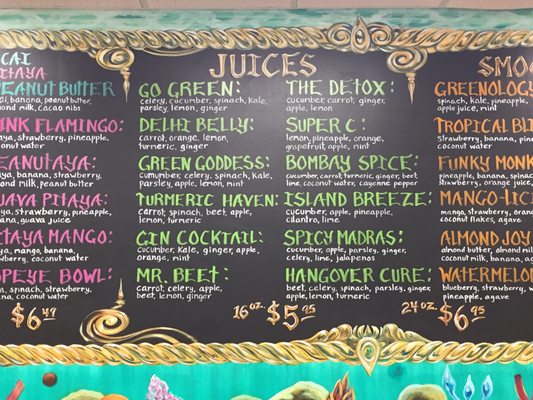 CAI
PITAYA
PEANUT BUTTER
banana, peanut butter,
almond milk, cacao nibs
PINK FLAMINGO:
strawberry, pineapple,
coconut water
PEANUTAYA:
banana, strawberry,
almond milk, peanut butter
JAVA PITAYA:
strawberry, pineapple,
banana, guava juice
PITAYA MANGO:
mango, banana,
coconut water
POPEYE BOWL:
spinach, strawberry,
banana, coconut water
$6.49
JUICES
GO GREEN:
celery, cucumber, spinach, kale,
parsley, lemon, ginger
DELHI BELLY:
carrot, orange, lemon,
turmeric, ginger
GREEN GODDESS:
cucumber, celery, spinach, kale,
parsley, apple, lemon, mint
TURMERIC HAVEN:
carrot, spinach, beet, apple,
lemon, turmeric
GIN COCKTAIL:
cucumber, kale, ginger, apple,
orange, mint
MR. BEET:
carrot, celery, apple,
beet, lemon, ginger
THE DETOX:
cucumber, carrot, ginger,
apple, lemon
SUPER C:
lemon, pineapple, orange,
grapefruit, apple, mint
BOMBAY SPICE:
cucumber, carrot, turmeric, ginger, beet
lime, coconut water, cayenne pepper
ISLAND BREEZE:
cucumber, apple, pineapple,
cilantro, lime
SPICY MADRAS:
cucumber, apple, parsley, ginger,
celery, lime, jalapenos
HANGOVER CURE:
beet, celery, spinach, parsley, ginger,
apple, lemon, turmeric
16 oz. $5.95
SMOO
GREENOLOGY
spinach, kale, pineapple,
apple juice, mint
TROPICAL BLI
Strawberry, banana, pine
coconut water
FUNKY MONK
pineapple, banana, spinach
strawberry, orange juice,
MANGO-LICI
mango, strawberry, oran
coconut flakes, agave
ALMOND JOY
almond butter, almond mil
coconut milk, banana, ag
WATERMELON
blueberry, strawberry, wa
pineapple, agave
24 oz. $6.95